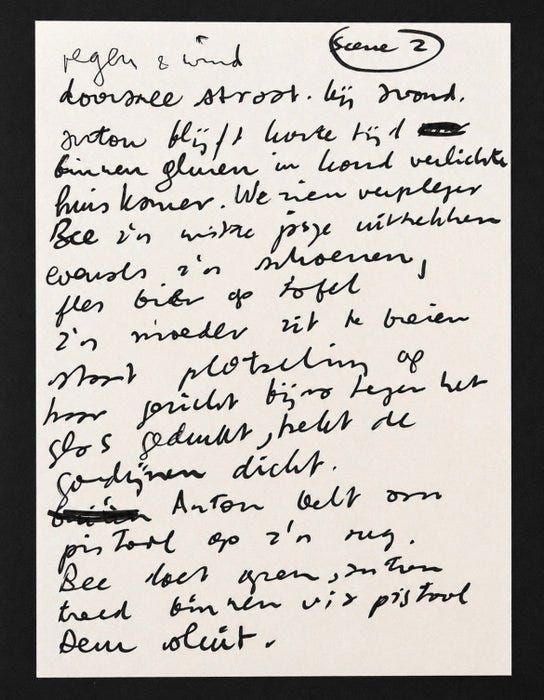 Scene 2
regen & wind
doorsnee straat. bij avond.
anton blijft korte tijd
binnen gluren in hond verlichte
huiskamer. We zien verpleger
Bee z'n witte jasje uittrekken
evenals z'n schoenen,
fles bier op tafel
z'n moeder zit te breien
staat plotseling op
haar gezicht bijna tegen het
glas gedrukt, trekt de
gordijnen dicht.
Anton belt aan
pistool op z'n rug.
Bee doet open, anton
treed binnen via pistool
Deur sluit.